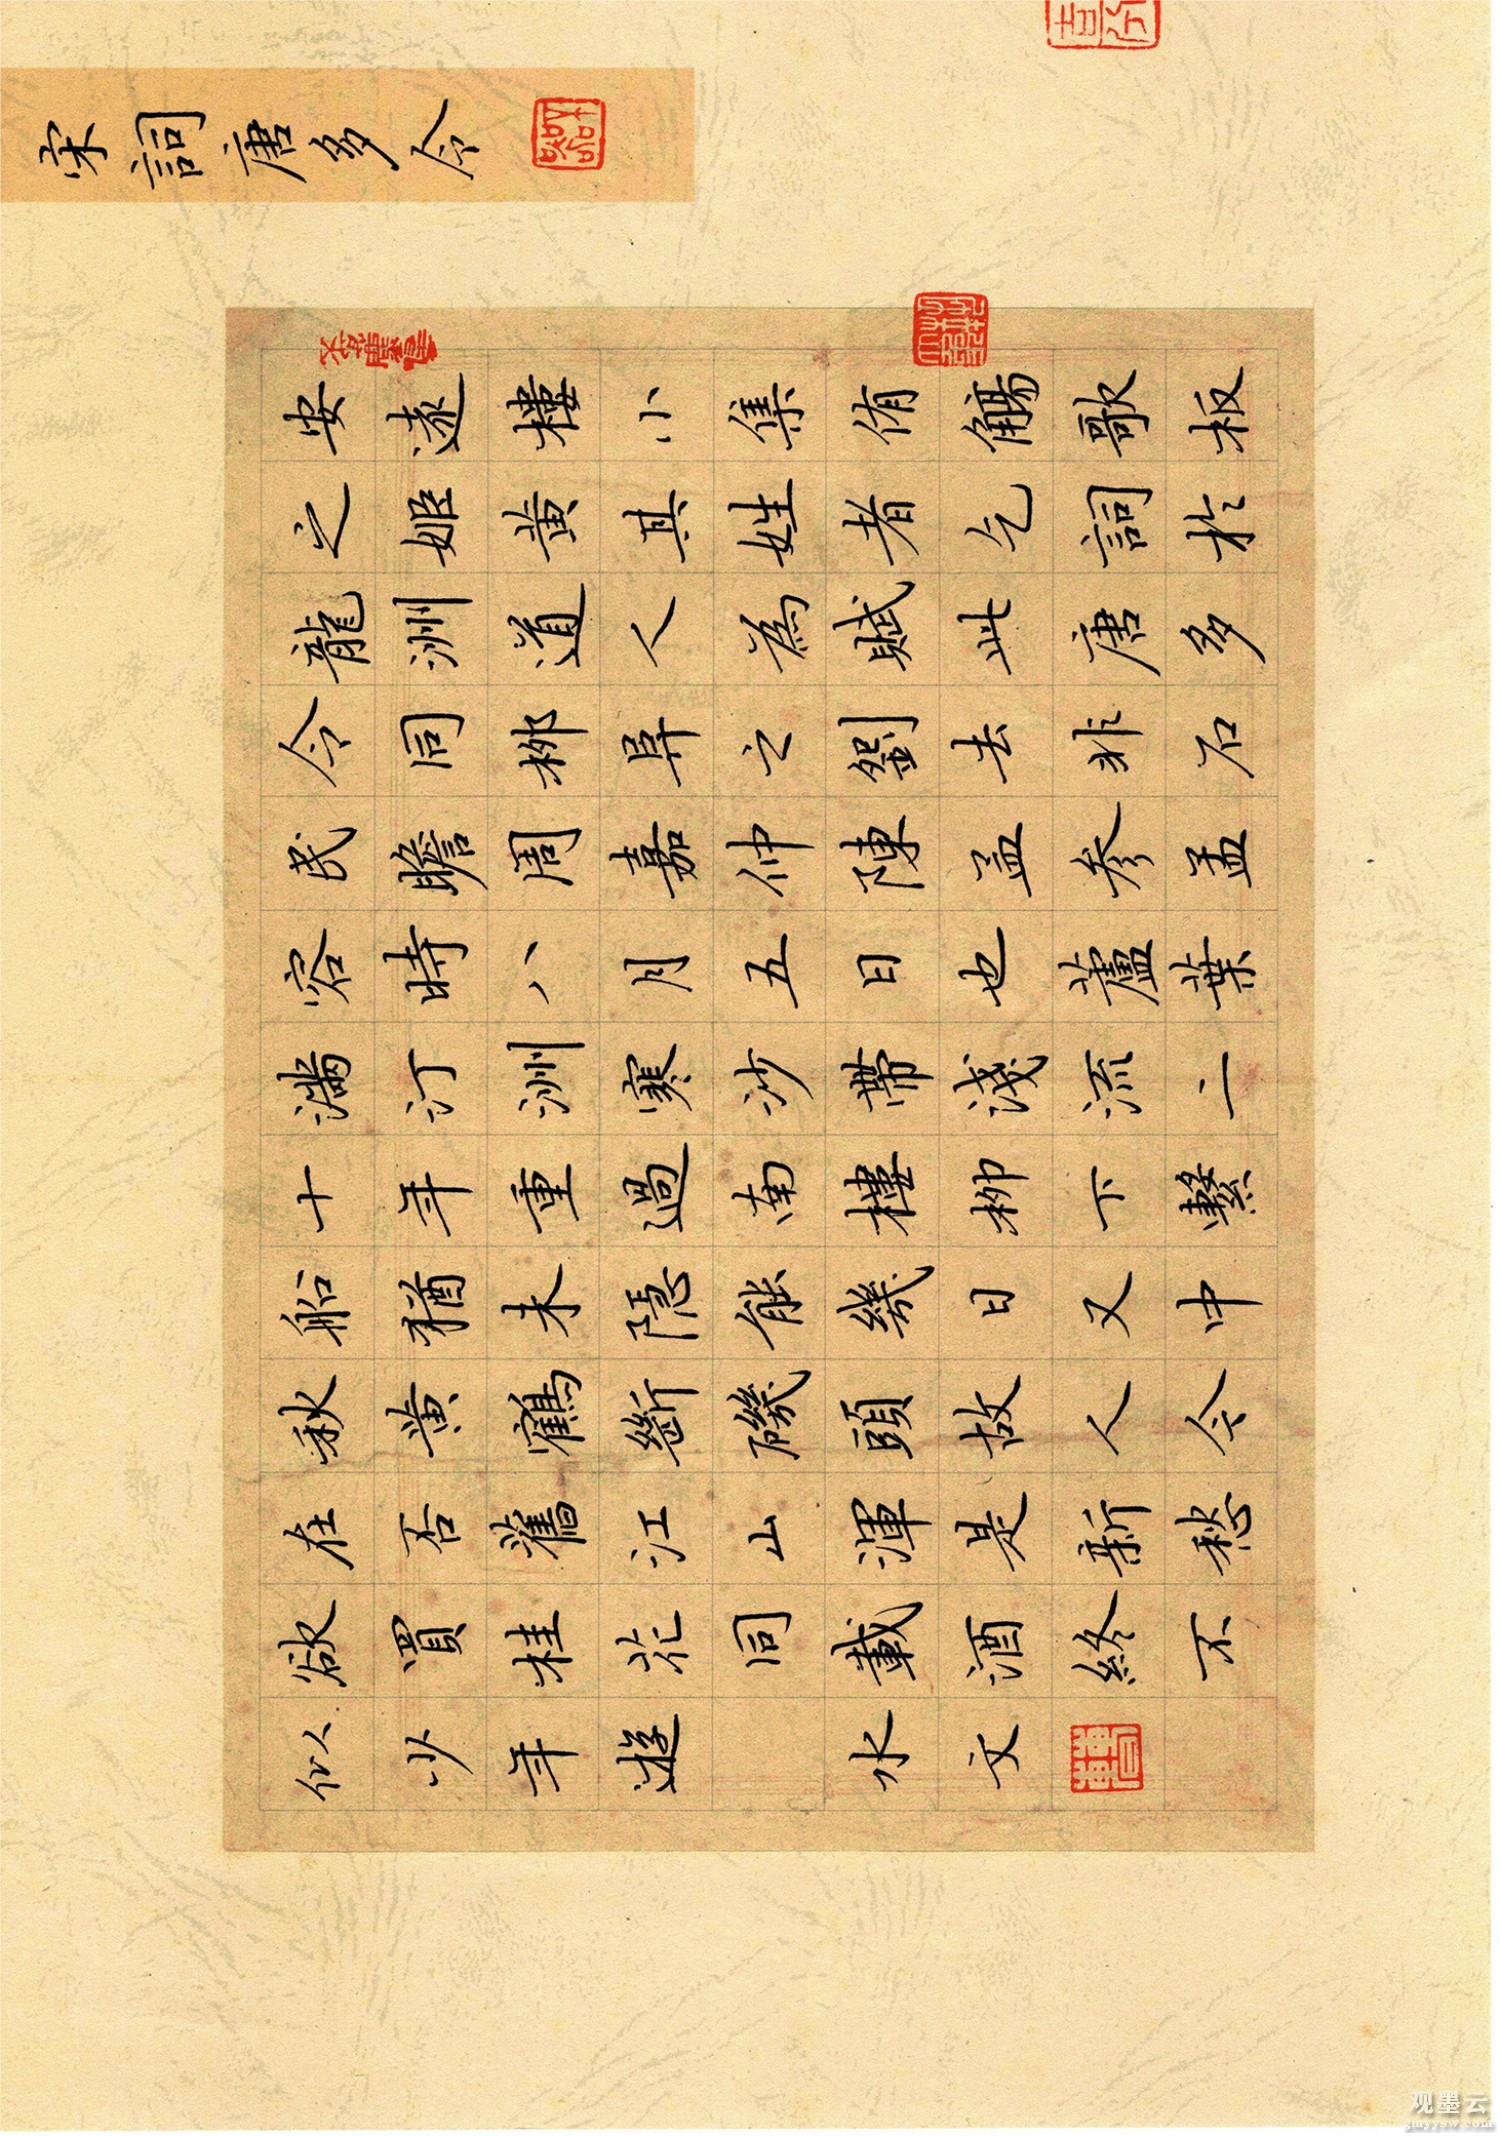 宋詞唐多令
安遠樓小集侑觴歌板
之姬黄其姓者乞詞於
龍洲道人為賦此唐多
令同柳阜之劉去非石
民瞻周嘉仲陳孟參孟
容時八月五日也蘆葉
滿汀洲寒沙帶淺流二
十年重過南樓柳下繫
船猶未隱能幾日又中
秋黄鶴斷磯頭故人今
在否舊江山渾是新愁
欲買桂花同載酒終不
似少年遊 水文
观墨云